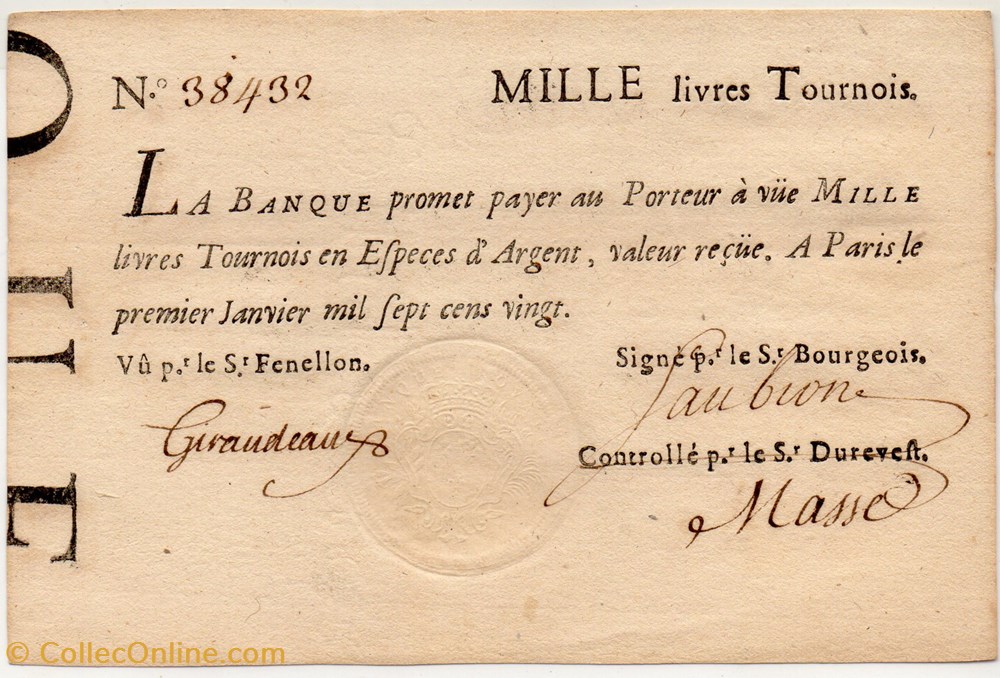 N.º 38432 MILLE livres Tournois.
LA BANQUE promet payer au Porteur à vüe MILLE
livres Tournois en Eſpeces d'Argent, valeur reçüe. A Paris le
premier Janvier mil ſept cens vingt.
Vû p.r le S.r Fenellon. Signé p.r le S.r Bourgeois.
Giraudeau Saubion
Controllé p.r le S.r Dureveſt.
Masse
© CollecOnline.com